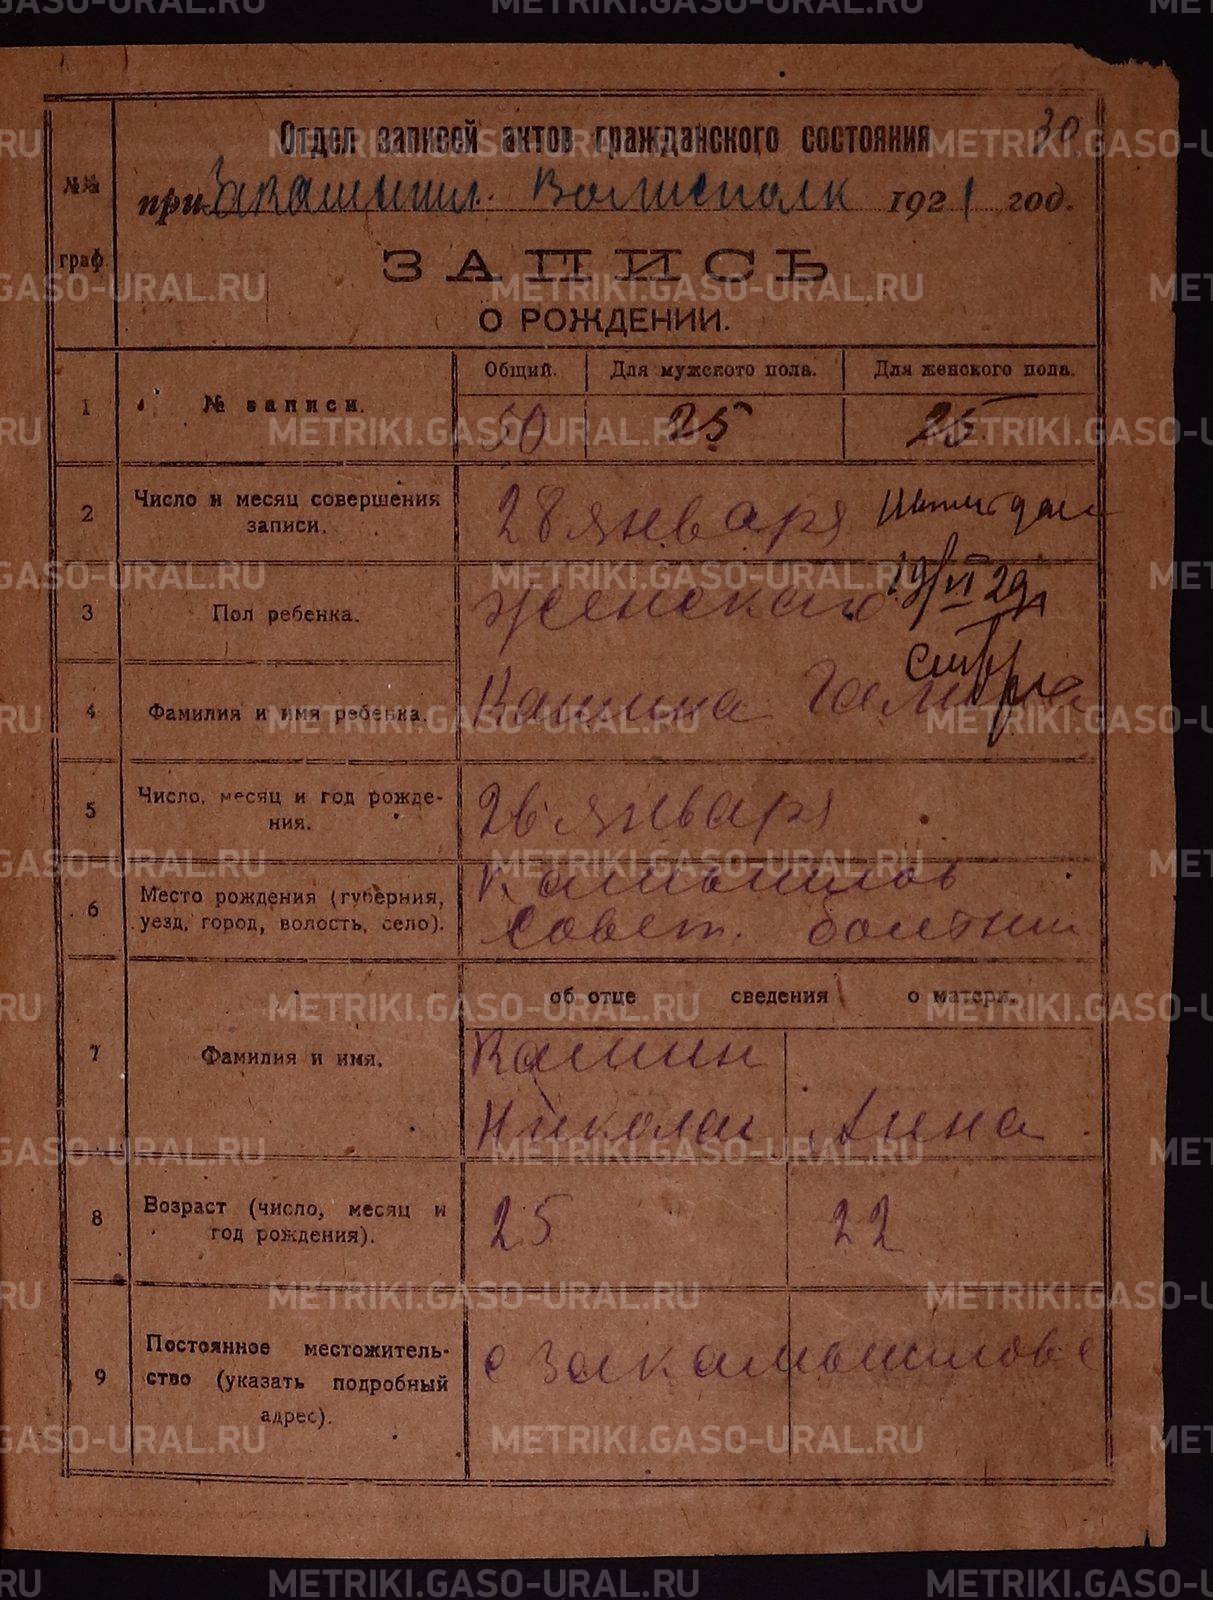 Отдел записей актов гражданского состояния 30
при Закамышл. Волисполк 1921 год.
№№ граф.
ЗАПИСЬ
О РОЖДЕНИИ.
1 № записи. Общий. Для мужского пола. Для женского пола.
50 25 25
2 Число и месяц совершения записи. 28 января
3 Пол ребенка. женскаго 19/VI 29
4 Фамилия и имя ребенка. Кашина
5 Число, месяц и год рождения. 26 января
6 Место рождения (губерния, уезд, город, волость, село). Камышлов
Совет. болтниц
об отце сведения о матери.
7 Фамилия и имя. Кашин
Николай Анна
8 Возраст (число, месяц и год рождения). 25 22
9 Постоянное местожительство (указать подробный адрес). с Закамышлове
METRIKI.GASO-URAL.RU